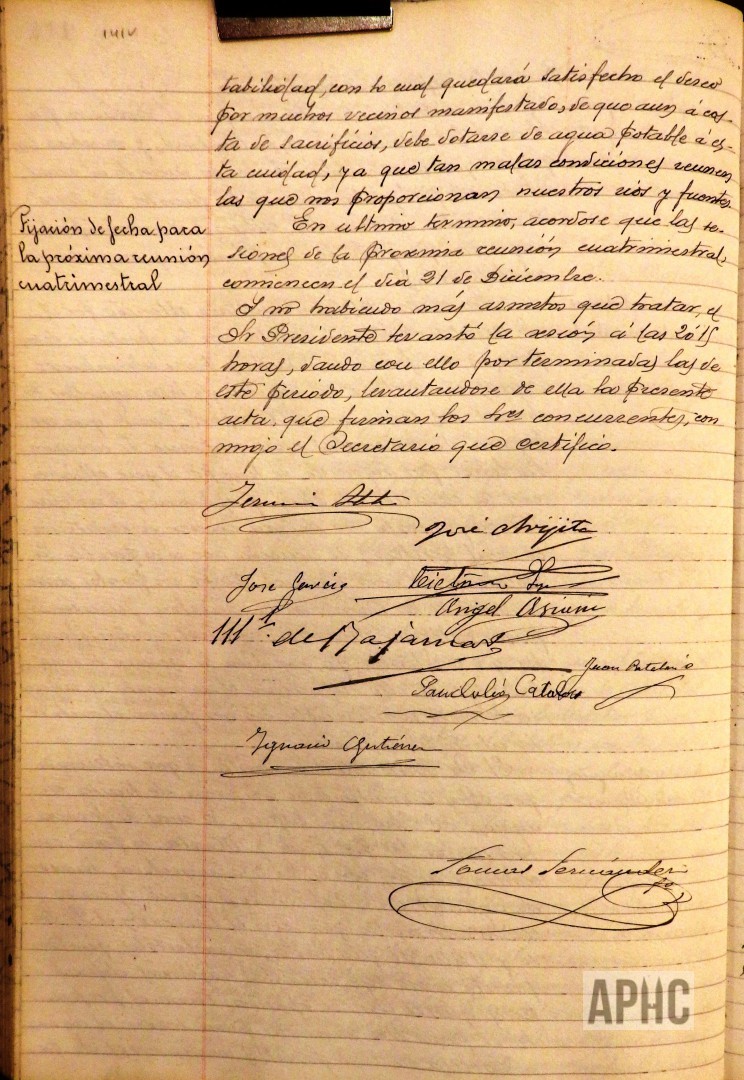 tabilidad, con lo cual quedará satisfecho el deseo
por muchos vecinos manifestado, de que aun á cos-
ta de sacrificios, debe dotarse de agua potable á és-
ta ciudad, ya que tan malas condiciones reunen
las que nos proporcionan nuestros rios y fuentes.
Fijación de fecha para
la próxima reunión
cuatrimestral
En ultimo termino, acordose que las se-
siones de la proxima reunión cuatrimestral,
comiencen el dia 21 de Diciembre.
Y no habiendo más asuntos que tratar, el
Sr Presidente levantó la sesión á las 20'15
horas, dando con ello por terminadas las de
este periodo, levantandose de ella la presente
acta, que firman los Sres concurrentes, con
migo el Secretario que certifico.
José
José García
Angel
de
Juan
Ignacio Gutiérrez
Tomas Fernández
APHC